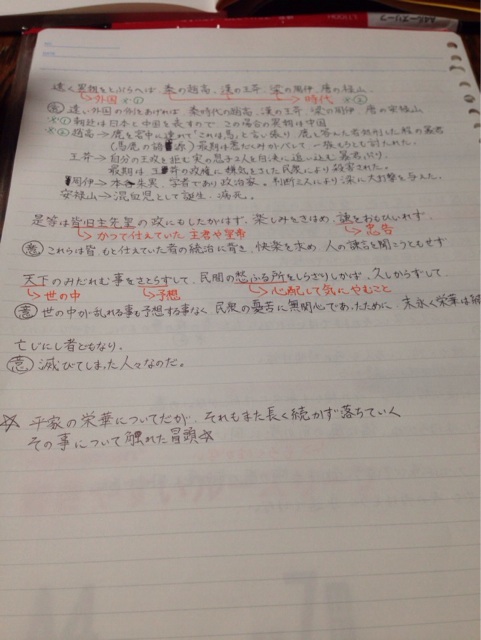 遠く異朝をとぶらへば、秦の趙高、漢の王莽、梁の周伊、唐の禄山、
外国 ※① 時代 ※②
意 遠い外国の例をあげれば、秦時代の趙高、漢の王莽、梁の周伊、唐の安禄山
※① 和辻は日本と中国を
※② 趙高→鹿を宮中に連れて「これは馬」と言い張り、鹿と答えた者
(馬鹿の語源) 最期は悪だくみがバレて、一族もろとも討たれた。
王莽→自分の王政を拒む実の息子2人を自決に追い込む暴君ぶり。
最期は王莽の政権に嫌気をさした民衆により殺害された。
周伊→本名朱异、学者であり政治家。判断ミスにより梁に大打撃を与えた。
安禄山→混血児として誕生。病死。
是等は皆旧主先皇の政にもしたがはず、楽しみをきはめ、諫をおもひいれず、
かつて仕えていた主君や皇帝 忠告
意 これらは皆、もと仕えていた者の統治に背き、快楽を求め、人の諫言を聞こうともせず、
天下のみだれむ事をさとらずして、民間の愁ふる所をしらざりしかば、久しからずして、
世の中 予想 心配して気にやむこと
意 世の中が乱れる事も予想する事なく、民衆の憂苦に無関心であったために、末永く栄華は
亡じにし者どもなり。
意 滅びてしまった人々なのだ。
☆ 平家の栄華についてだが、それもまた長く続かず落ちていく
その事について触れた冒頭☆